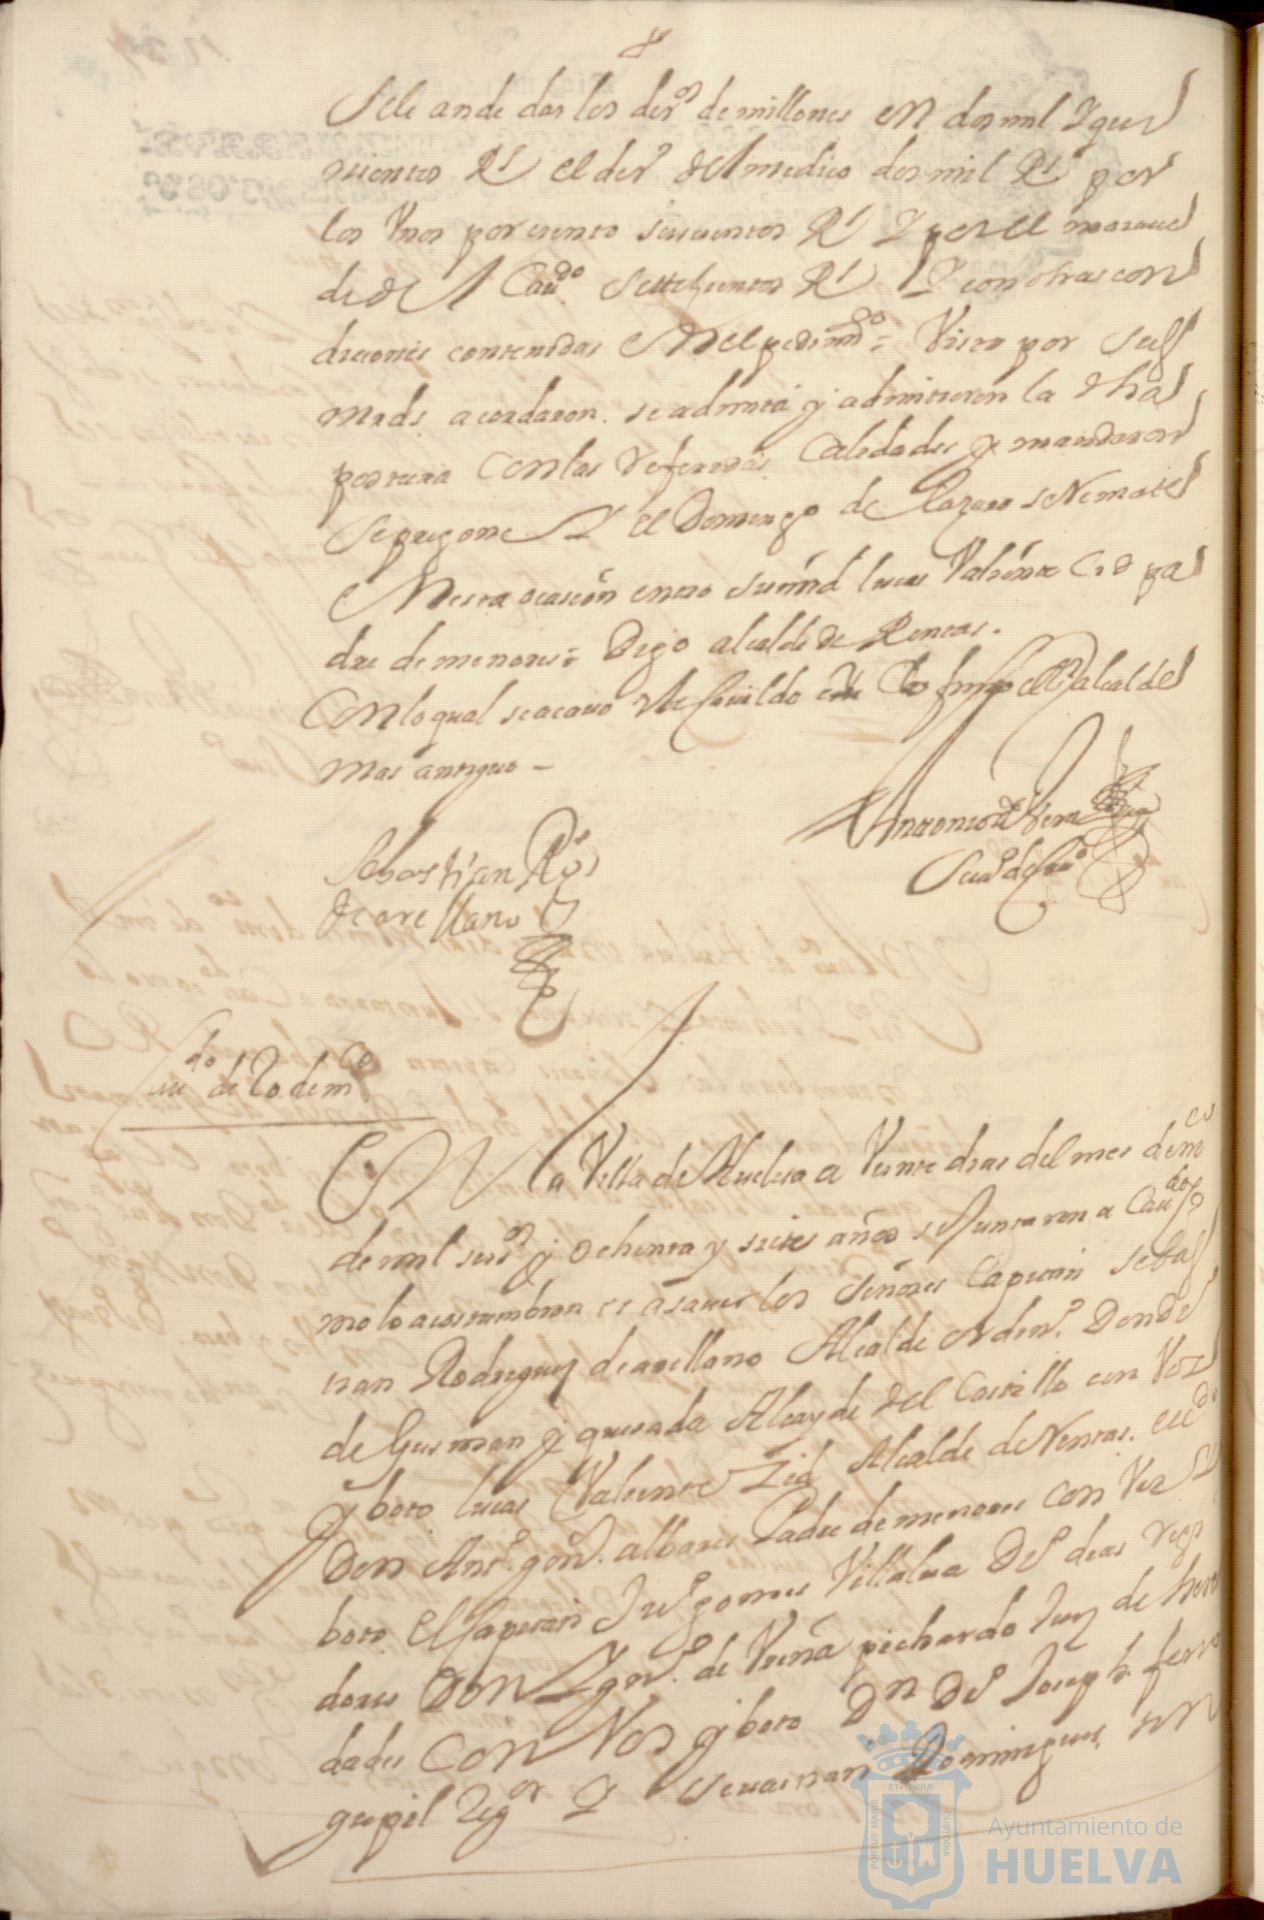 Sele an de dar los der.os de millones en dos mil y qui
nientos R.s el der.o del medico dos mil R.s por
los Unos por ciento seiscientos R.s Y por el
de de l Cau.do Settesientos R.s Y con otras con
diciones contenidas En el pedim.to = Visto por Sus
mrds. acordaron se admita y admitieron la dha
postura con las referidas Calidades y mandaron
Se pregone Y el Domingo de Lazaro se Remate
En esta ocasion entro su md lucas Valiente Cid pa
dre de menores = Digo alcalde de Rentas.
Con lo qual se acauo este Cavildo alcalde
mas antiguo -
Antonio de Vera
Scri.o de Cau.do
Sebastian Ro.s
de arellano
Cau.do de 20. de m.co
En la Villa de Huelva a Veinte dias del mes de m.co
de mil seis.os y ochenta y siete años se Juntaron a Cau.do co
mo lo acostumbran es a sauer los Señores Capitan Sebas
tian Rodriguez de arellano Alcalde ordin.o Don de
de Gusman y quesada Alcayde del Castillo con Voz
y boto lucas Valiente Zid Alcalde de Rentas.
Don Ant.o gon.s albares Padre de menores con Voz y
boto El Capitan Ju.o gomes Villalua D.o dias regi
dores Don Ygn.o de Vreña pichardo Juez de here
dades con Voz y boto D.n D.o Joseph ferr
gupil Reg.or Y Sevastian Domingues
Ayuntamiento de
HUELVA
PORTUS MARIS
ET TERRÆ
CUSTODIA